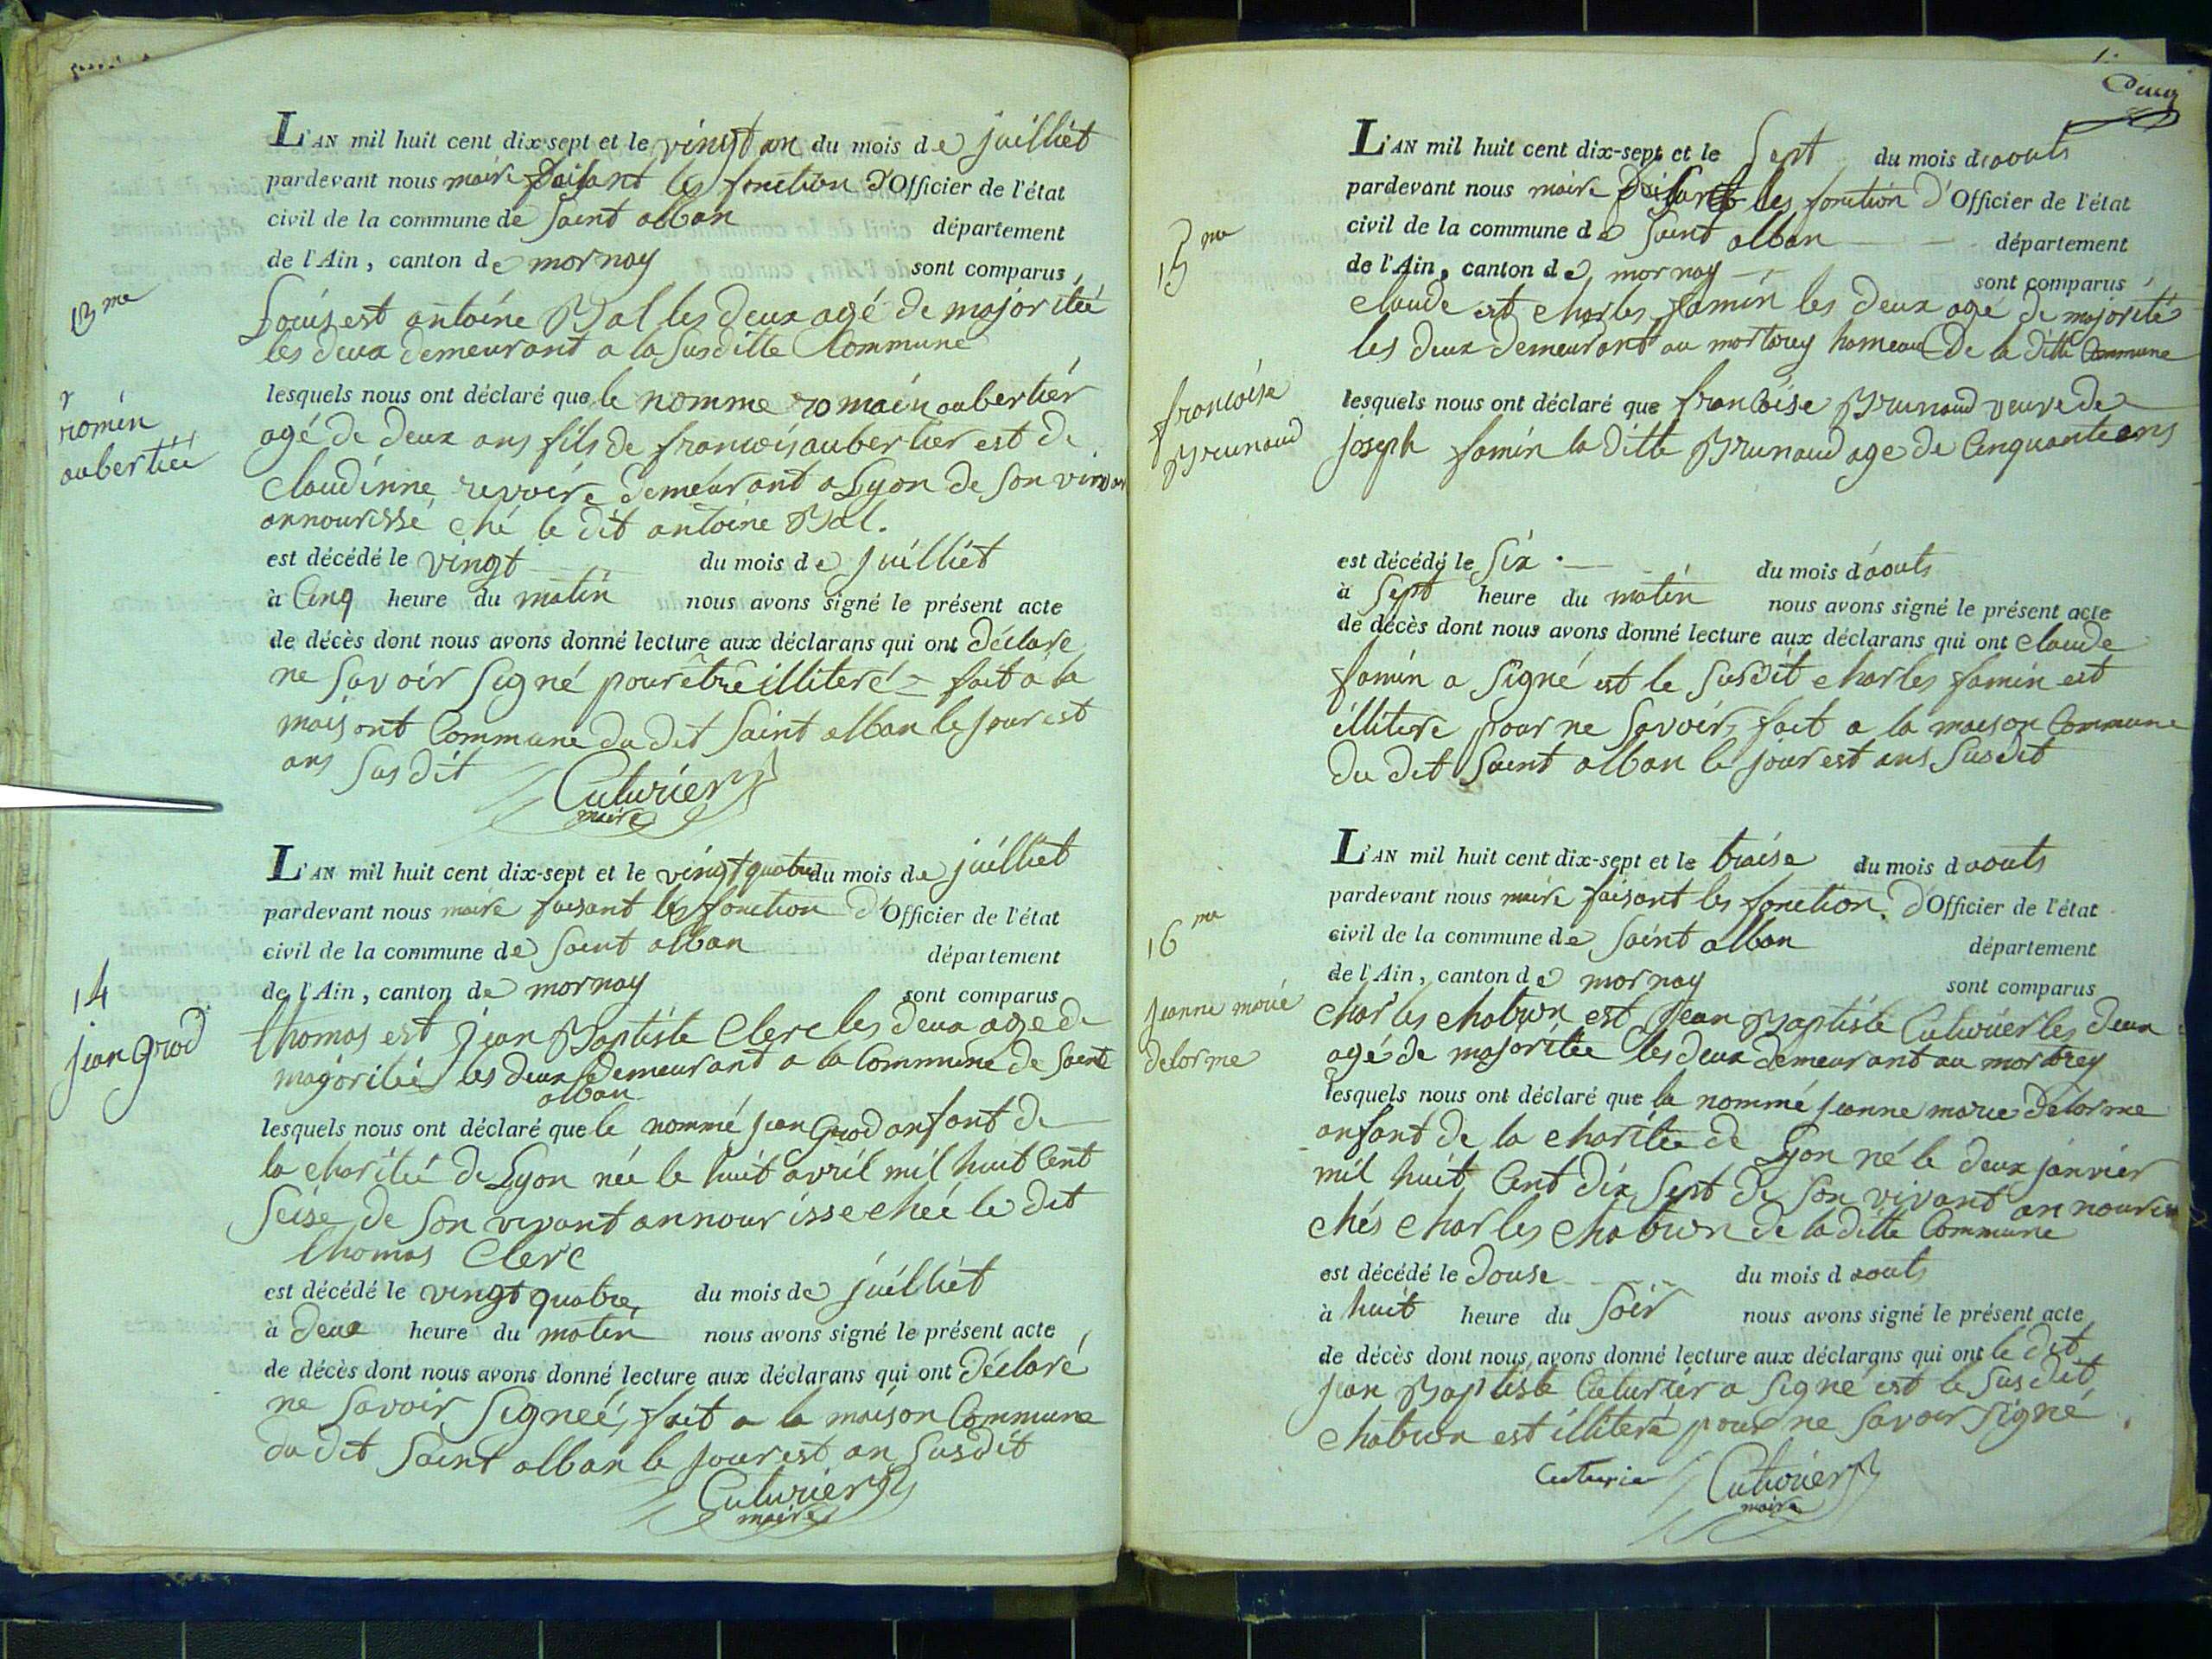 L'AN mil huit cent dix-sept et le vingt un du mois de juilliet
pardevant nous maire faisant les fonction d'Officier de l'état
civil de la commune de Saint alban département
de l'Ain, canton de mornay sont comparus,
13me
Louis est antoine Bal les deux agé de majoritée
les deux demeurant a la susditte Commune
romin
aubertiér
lesquels nous ont déclaré que le nomme romain aubertiér
agé de deux ans fils de francois aubertier est de
Claudinne revoire demeurant a Lyon de son vivan
annourissé ché le dit antoine Bal.
est décédé le vingt du mois de juilliet
à Cinq heure du matin nous avons signé le présent acte
de décès dont nous avons donné lecture aux déclarans qui ont déclare
ne savoir signé pour être illiteré = fait a la
maisont Commune du dit Saint alban le jour est
ans susdit
Cuturier
maire
L'AN mil huit cent dix-sept et le vingt quatre du mois de juilliet
pardevant nous maire faisant les fonction d'Officier de l'état
civil de la commune de Saint alban département
de l'Ain, canton de mornay sont comparus
14
jean Grod
thomas est jean Baptiste Clerc les deux age de
majoritée les deux demeurant a la Commune de Saint
alban
lesquels nous ont déclaré que le nommé jean Grod anfant de
la charitée de Lyon née le huit avril mil huit Cent
seise de son vivant annourisse chée le dit
thomas Clerc
est décédé le vingt quatre du mois de juilliet
à deux heure du matin nous avons signé le présent acte
de décès dont nous avons donné lecture aux déclarans qui ont déclaré
ne savoir signeé, fait a la maison Commune
du dit Saint alban le jour est an susdit
Cuturier
maire
Cinq
L'AN mil huit cent dix-sept et le sept du mois d'aouts
pardevant nous maire faisant les fonction d'Officier de l'état
civil de la commune de Saint alban département
15me
de l'Ain, canton de mornay sont comparus
claude est charles famin les deux age de majorité
les deux demeurant au mortarey hameau de la ditte Commune
francoise
Brunaud
lesquels nous ont déclaré que francoise Brunaud veuve de
joseph famin la ditte Brunaud age de Cinquante ans
est décédé le six du mois d'aouts
à sept heure du matin nous avons signé le présent acte
de décès dont nous avons donné lecture aux déclarans qui ont claude
famin a signé est le susdit charles famin est
illitere pour ne savoir, fait a la maison Commune
du dit Saint alban le jour est ans susdit
L'AN mil huit cent dix-sept et le traise du mois d aouts
pardevant nous maire faisant les fonction d'Officier de l'état
civil de la commune de Saint alban département
16me
de l'Ain, canton de mornay sont comparus
jeanne marie
delorme
charles chabron est jean Baptiste Cuturier les deux
agé de majoritée les deux demeurant au mortarey
lesquels nous ont déclaré que la nommé jeanne marie delorme
anfant de la charitée de Lyon né le deux janvier
mil huit Cent dix sept de son vivant annouris
chés charles chabron de la ditte Commune
est décédé le douse du mois d aouts
à huit heure du soir nous avons signé le présent acte
de décès dont nous avons donné lecture aux déclarans qui ont le dit
jean Baptiste Cuturiér a signé est le susdit
chabron est illiteré pour ne savoir signé
Cuturier Cuturier
maire